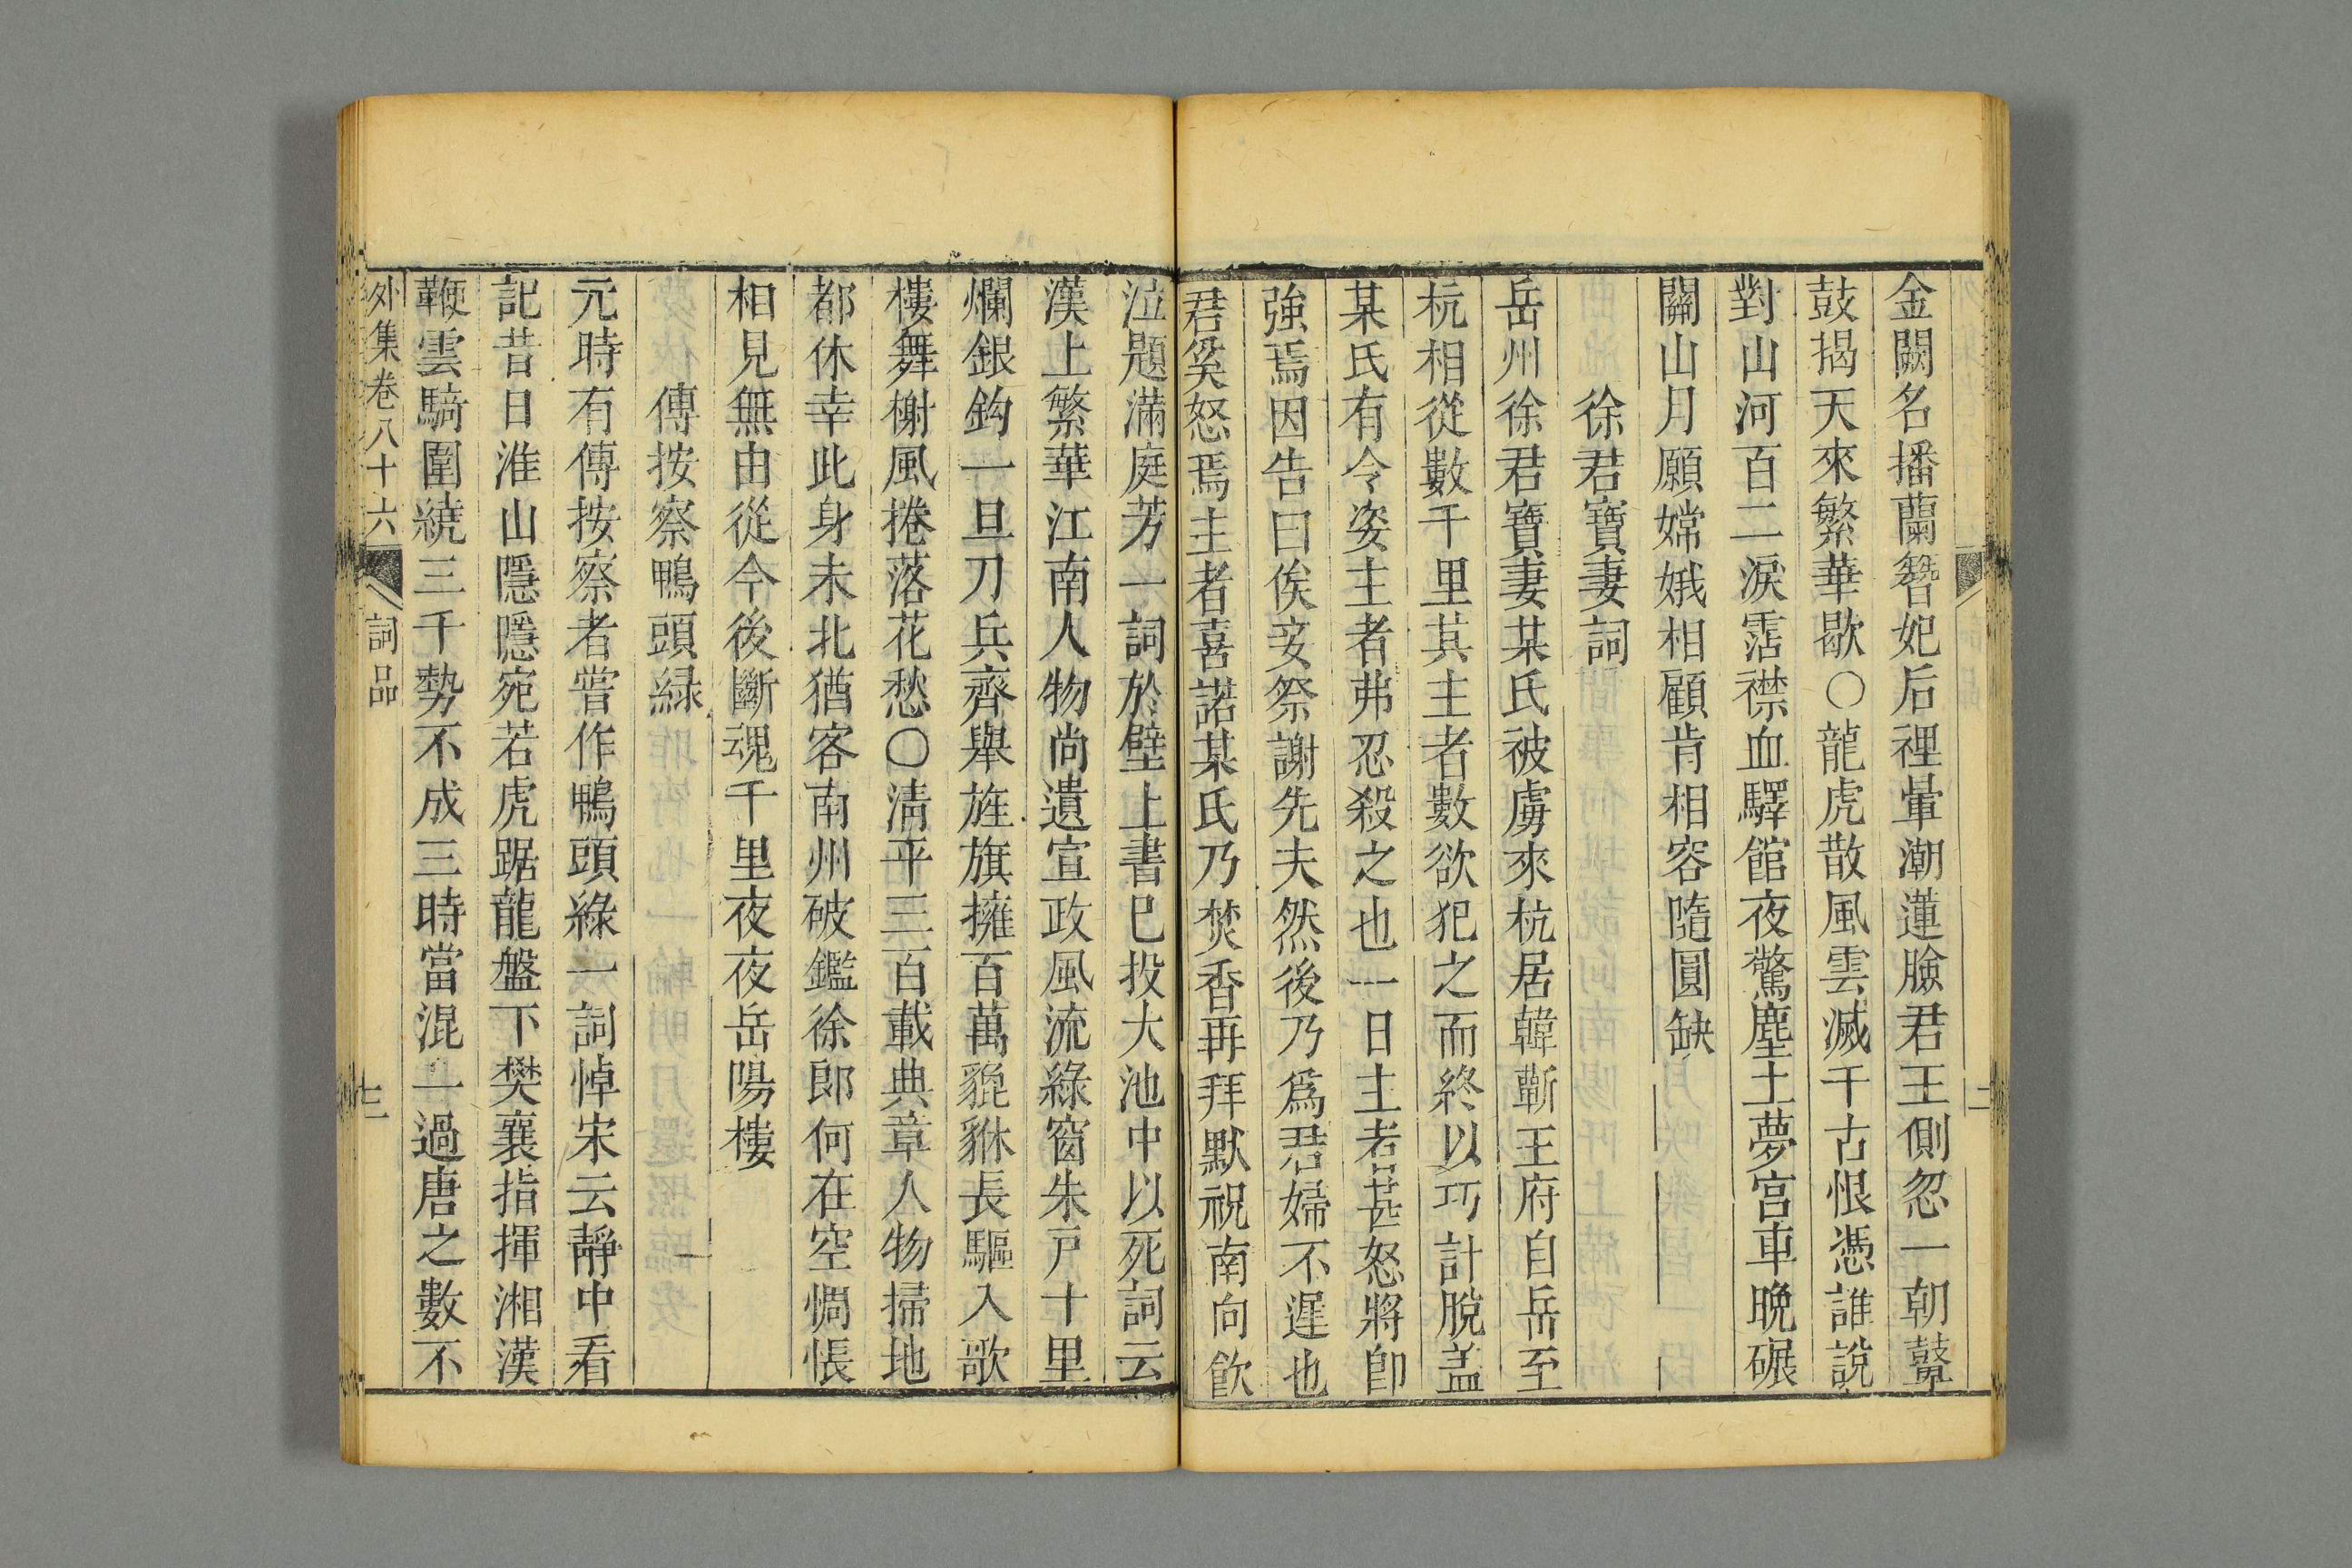 金闕名播蘭簪妃后裡暈潮蓮臉君王側忽一朝鼙
鼓揭天來繁華歇○龍虎散風雲滅千古恨憑誰說
對山河百二淚霑襟血驛館夜驚塵土夢宮車晚碾
關山月願嫦娥相顧肯相容隨圓缺
徐君寶妻詞
岳州徐君寶妻某氏被虜來杭居韓蘄王府自岳至
杭相從數千里其主者數欲犯之而終以巧計脫盖
某氏有令姿主者弗忍殺之也一日主者甚怒將卽
強焉因告曰俟妾祭謝先夫然後乃爲君婦不遲也
君奚怒焉主者喜諾某氏乃焚香再拜默祝南向飮
泣題滿庭芳一詞於壁上書已投大池中以死詞云
漢上繁華江南人物尚遺宣政風流綠窗朱戸十里
爛銀鈎一旦刀兵齊舉旌旗擁百萬貔貅長驅入歌
樓舞榭風捲落花愁○淸平三百載典章人物掃地
都休幸此身未北猶客南州破鑑徐郞何在空惆悵
相見無由從今後斷魂千里夜夜岳陽樓
傳按察鴨頭綠
元時有傳按察者嘗作鴨頭綠一詞悼宋云靜中看
記昔日淮山隱隱宛若虎踞龍盤下樊襄指揮湘漢
鞭雲騎圍繞三千勢不成三時當混一過唐之數不
外集卷八十六 詞品 十二